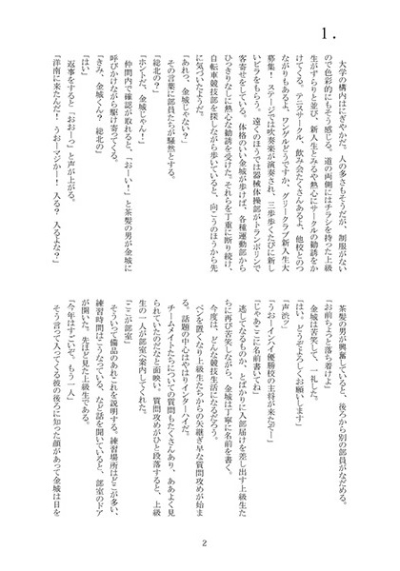 1.
大学の構内はにぎやかだ。人の多さもそうだが、制服がない
ので色彩的にもそう感じる。道の両側にはチラシを持った上級
生がずらりと並び、新入生とみるや熱心にサークルの勧誘をか
けてくる。テニスサークル、飲み会たくさんあるよ、他校とのつ
ながりもあるよ、ワンゲルどうですか、グリークラブ新入生大
募集！ステージでは吹奏楽が演奏され、三歩歩くたびに新し
いビラをもらう。遠くのほうでは器械体操部がトランポリンで
客寄せをしている。体格のいい金城が歩けば、各種運動部から
ひっきりなしに熱心な勧誘を受けた。それらを丁重に断り続け、
自転車競技部を探しながら歩いていると、向こうのほうから先
に気づいたようだ。
「あれっ、金城じゃない？」
その言葉に部員たちが騒然とする。
「総北の？」
「ホントだ、金城じゃん！」
仲間内で確認が取れると、「おーい！」と茶髪の男が金城に
呼びかけながら駆け寄ってくる。
「きみ、金城くん？　総北の」
「はい」
返事をすると「おおーっ」と声が上がる。
「洋南に来たんだ！　うおーマジかー！　入る？　入るよな？」
茶髪の男が興奮していると、後ろから別の部員がなだめる。
「お前ちょっと落ち着けよ」
金城は苦笑して、一礼した。
「はい、どうぞよろしくお願いします」
「声渋っ」
「うおーインハイ優勝校の主将が来たぞー」
「じゃあここに名前書いてね」
逃してなるものか、とばかりに入部届を差し出す上級生た
ちに再び苦笑しながら、金城は丁寧に名前を書く。
今度は、どんな競技生活になるだろう。
ペンを置くなり上級生たちからの矢継ぎ早な質問攻めが始ま
る。話題の中心はやはりインターハイだ。
チームメイトたちについての質問もたくさんあり、ああよく見
られていたのだなと面映い。質問攻めがひと段落すると、上級
生の一人が部室に案内してくれた。
「ここが部室」
そういって備品のあれこれを説明する。練習場所はどこが多い、
練習時間はこうなっている、など話を聞いていると、部室のドア
が開いた。先ほど見た上級生である。
「今年はすごいぞ、もう一人」
そう言って入ってくる彼の後ろに知った顔があって金城は目を
2